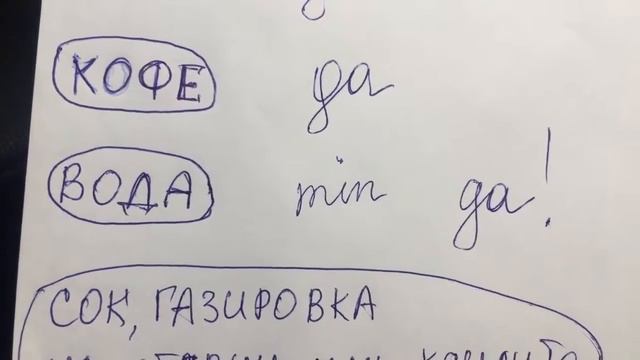 КОФЕ да
ВОДА min да!
СОК, ГАЗИРОВКА